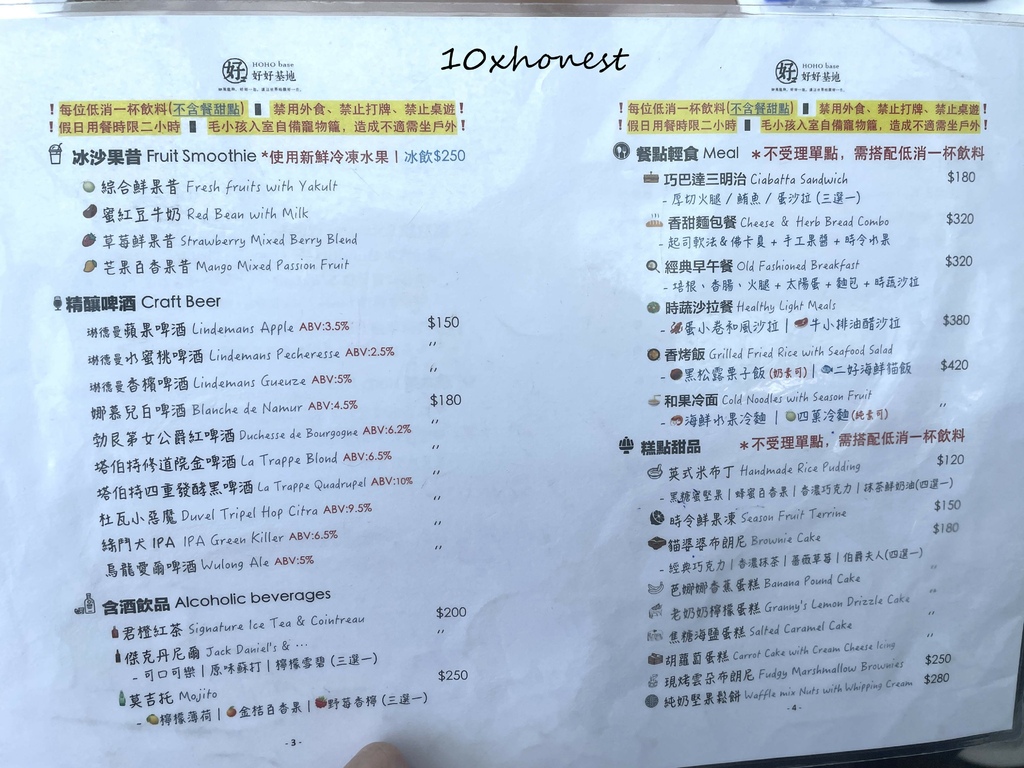 10xhonest
好 HOHO base
好好基地
！每位低消一杯飲料(不含餐甜點) 禁用外食、禁止打牌、禁止桌遊！
！假日用餐時限二小時 毛小孩入室自備寵物籠，造成不適需坐戶外！
冰沙果昔 Fruit Smoothie *使用新鮮冷凍水果｜冰飲$250
綜合鮮果昔 Fresh fruits with Yakult
蜜紅豆牛奶 Red Bean with Milk
草莓鮮果昔 Strawberry Mixed Berry Blend
芒果百香果昔 Mango Mixed Passion Fruit
精釀啤酒 Craft Beer
琳德曼蘋果啤酒 Lindemans Apple ABV:3.5% $150
琳德曼水蜜桃啤酒 Lindemans Pecheresse ABV:2.5% ,,
琳德曼香檳啤酒 Lindemans Gueuze ABV:5% ,,
娜慕兒白啤酒 Blanche de Namur ABV:4.5% $180
勃艮第女公爵紅啤酒 Duchesse de Bourgogne ABV:6.2% ,,
塔伯特修道院金啤酒 La Trappe Blond ABV:6.5% ,,
塔伯特四重發酵黑啤酒 La Trappe Quadrupel ABV:10% ,,
杜瓦小惡魔 Duvel Tripel Hop Citra ABV:9.5% ,,
綠鬥犬 IPA IPA Green Killer ABV:6.5% ,,
烏龍愛爾啤酒 Wulong Ale ABV:5% ,,
含酒飲品 Alcoholic beverages
君橙紅茶 Signature Ice Tea & Cointreau $200
傑克丹尼爾 Jack Daniel's & ... ,,
- 可口可樂｜原味蘇打｜檸檬雪碧 (三選一)
莫吉托 Mojito $250
- 檸檬薄荷｜金桔百香果｜野莓香檸 (三選一)
- 3 -
好 HOHO base
好好基地
！每位低消一杯飲料(不含餐甜點) 禁用外食、禁止打牌、禁止桌遊！
！假日用餐時限二小時 毛小孩入室自備寵物籠，造成不適需坐戶外！
餐點輕食 Meal ＊不受理單點，需搭配低消一杯飲料
巧巴達三明治 Ciabatta Sandwich $180
- 厚切火腿 / 鮪魚 / 蛋沙拉 (三選一)
香甜麵包餐 Cheese & Herb Bread Combo $320
- 起司軟法&佛卡夏 + 手工果醬 + 時令水果
經典早午餐 Old Fashioned Breakfast $320
- 培根、香腸、火腿 + 太陽蛋 + 麵包 + 時蔬沙拉
時蔬沙拉餐 Healthy Light Meals
- 蛋小卷和風沙拉｜牛小排油醋沙拉 $380
香烤飯 Grilled Fried Rice with Seafood Salad
- 黑松露栗子飯 (奶素可)｜二好海鮮貓飯 $420
和果冷面 Cold Noodles with Season Fruit
- 海鮮水果冷麵｜四菓冷麵(純素可) ,,
糕點甜品 ＊不受理單點，需搭配低消一杯飲料
英式米布丁 Handmade Rice Pudding $120
- 黑糖蜜堅果｜蜂蜜百香果｜香濃巧克力｜抹茶鮮奶油(四選一)
時令鮮果凍 Season Fruit Terrine $150
貓婆婆布朗尼 Brownie Cake $180
- 經典巧克力｜香濃抹茶｜薔薇草莓｜伯爵夫人(四選一)
芭娜娜香蕉蛋糕 Banana Pound Cake ,,
老奶奶檸檬蛋糕 Granny's Lemon Drizzle Cake ,,
焦糖海鹽蛋糕 Salted Caramel Cake
胡蘿蔔蛋糕 Carrot Cake with Cream Cheese Icing ,,
現烤雲朵布朗尼 Fudgy Marshmallow Brownies $250
純奶堅果鬆餅 Waffle mix Nuts with Whipping Cream $280
- 4 -